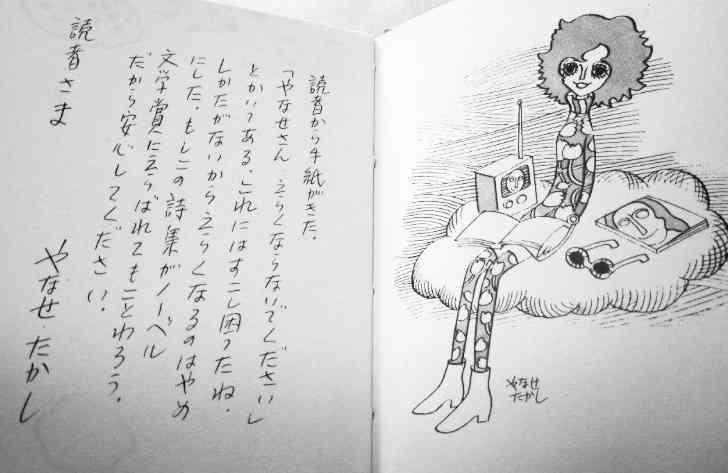 読者から手紙がきた。
「やなせさん えらくならないでください」
とかいてある。これにはすこし困ったね。
しかたがないからえらくなるのはやめ
にした。もしこの詩集がノーベル
文学賞にえらばれてもことわろう。
だから安心してください。
読者さま
やなせ・たかし
やなせ
たかし